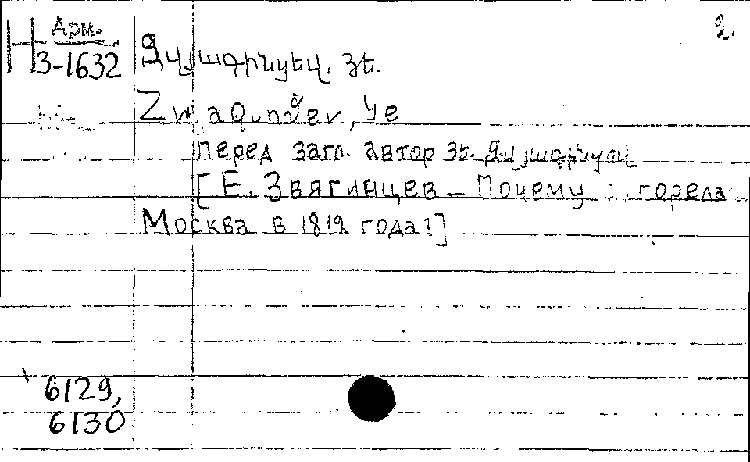 Арм. 2.
Н З-1632 Զվյագինցեվ. Յե.
Zvjagincev, Ye
перед загл. автор Յե. Զվյագինցեվ
[Е. Звягинцев - Почему горела
Москва в 1812 года?]
6129,
6130